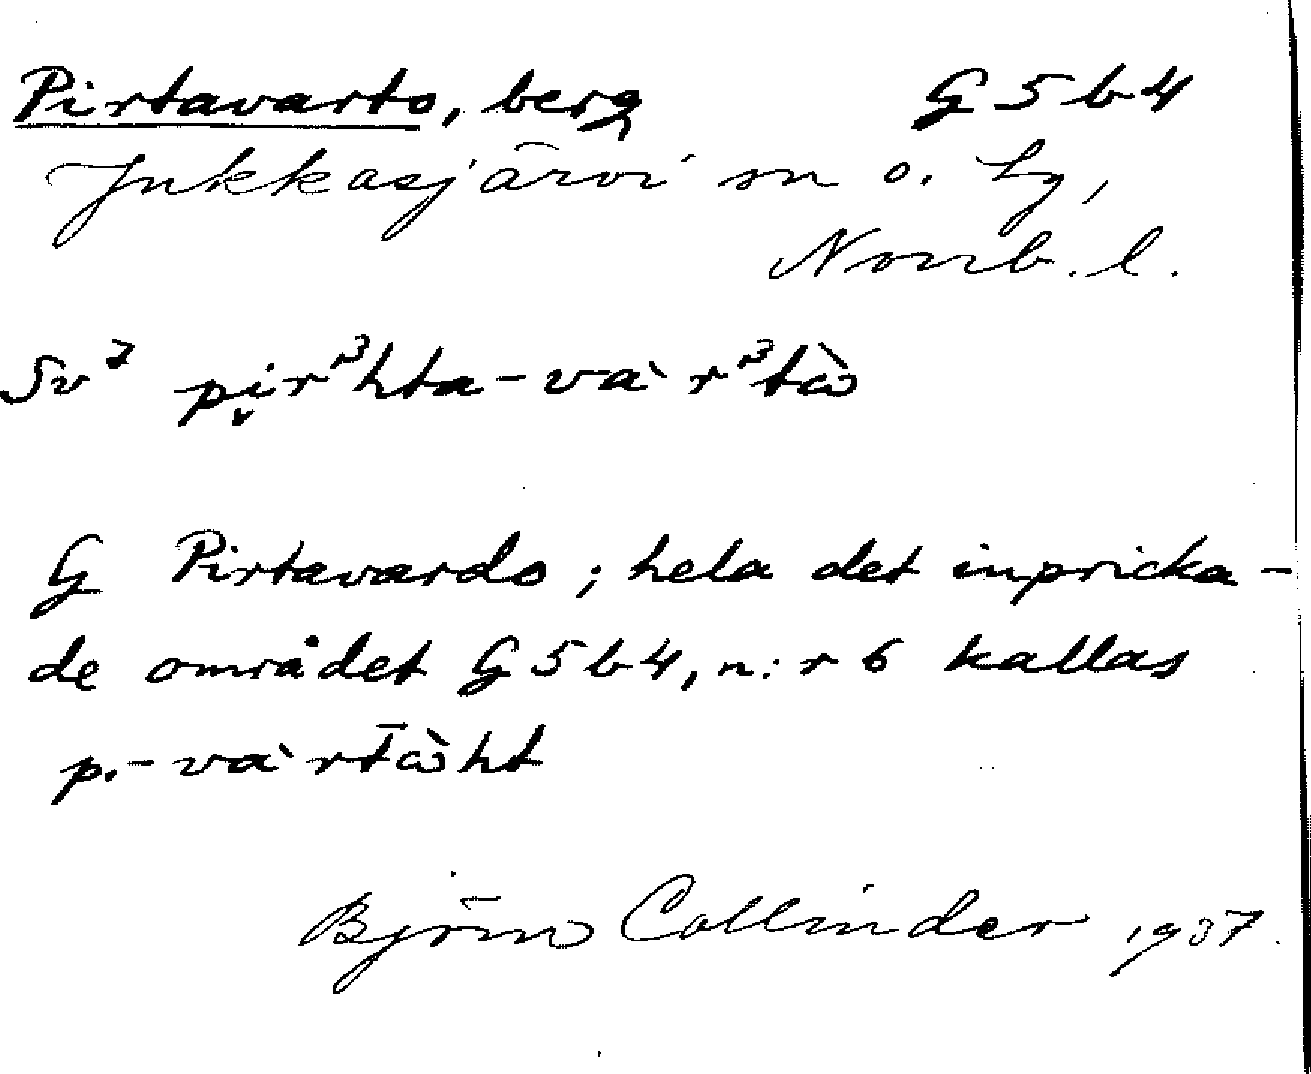 Pirtavarto, berg G5b4
Jukkasjärvi sn o. lg,
Norrb. l.
Sv² pi̬r³hta-vàr³tå̀
G Pirtavardo; hela det inpricka-
de området G5b4, n:r 6 kallas
p.-vàrt̄å̀ht
Björn Collinder 1937.